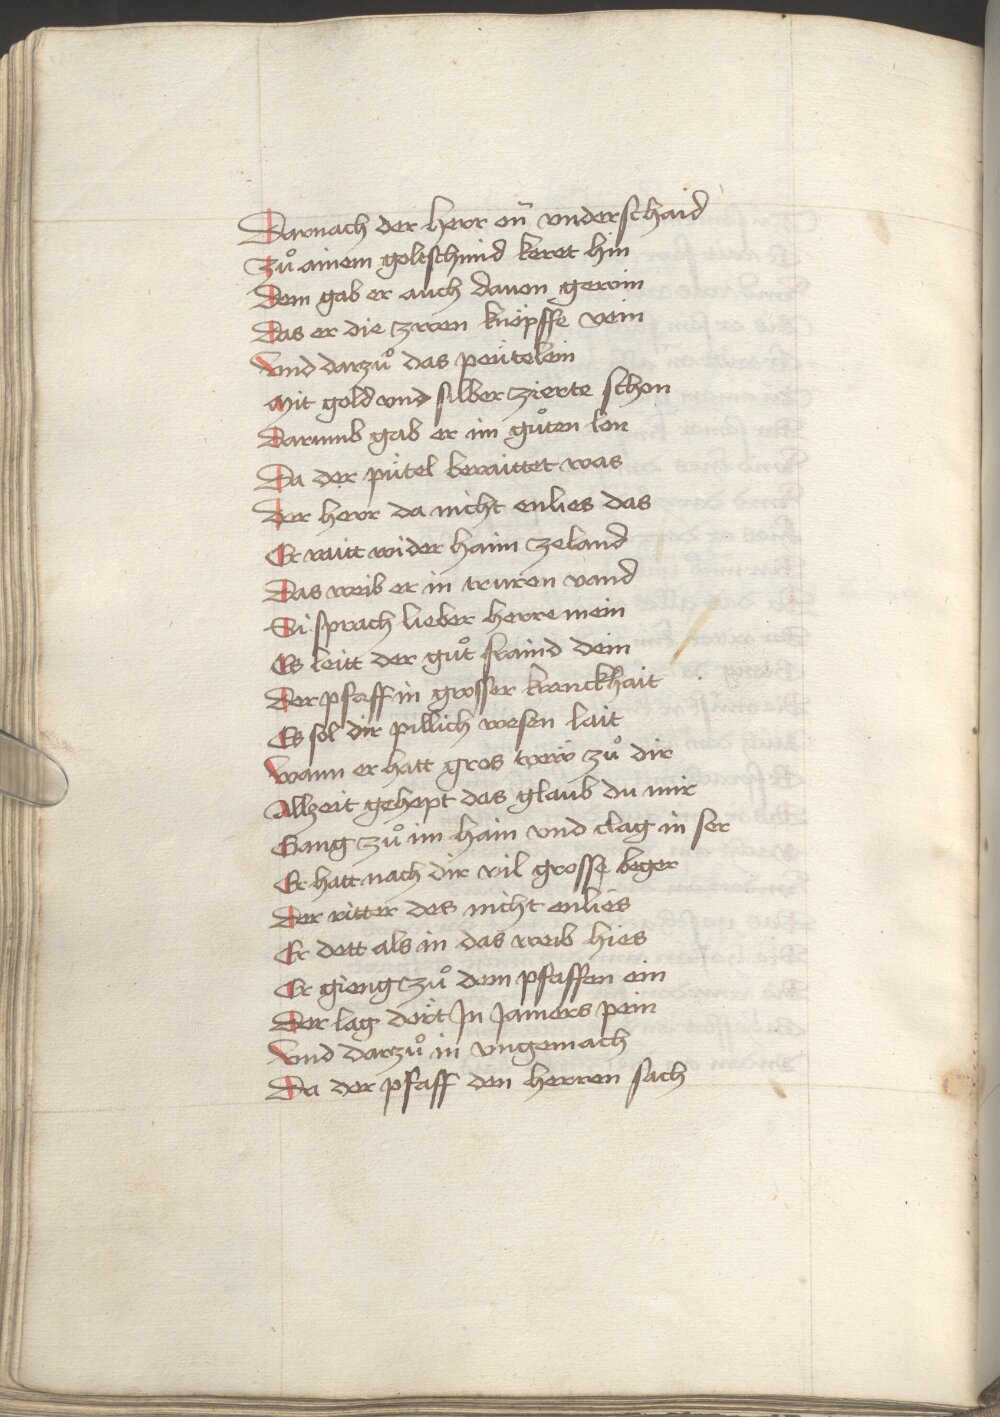 Darnach der herr on̄ vnderschaid
Zů ainem goltschmid keret hin
Dem gab er auch dauon gewin
Das er die zwen knöpffe vein
Vnd darzů das peütelein
Mit gold vnd silber zierte schon
Darumb gab er im gůten lon
Da der pütel beraittet was
Der herr da nicht enlies das
Er raitt wider haim ze land
Das weib er in truren vand
Si sprach lieber herre mein
Es leitt der gůt fraind dein
Der pfaff in grosser kranckhait
Es sol dir pillich wesen lait
Wann er hatt gros trew zů dir
Allzeit gehept das glaub du mir
Gang zů im hain vnd clag in ser
Er hatt nach dir vil grosse beger
Der ritter des nicht enlies
Er dett als in das weib hies
Er gieng zů dem pfaffen ein
Der lag dört Jn Jamers pein
Vnd darzů in vngemach
Da der pfaff den herren sach